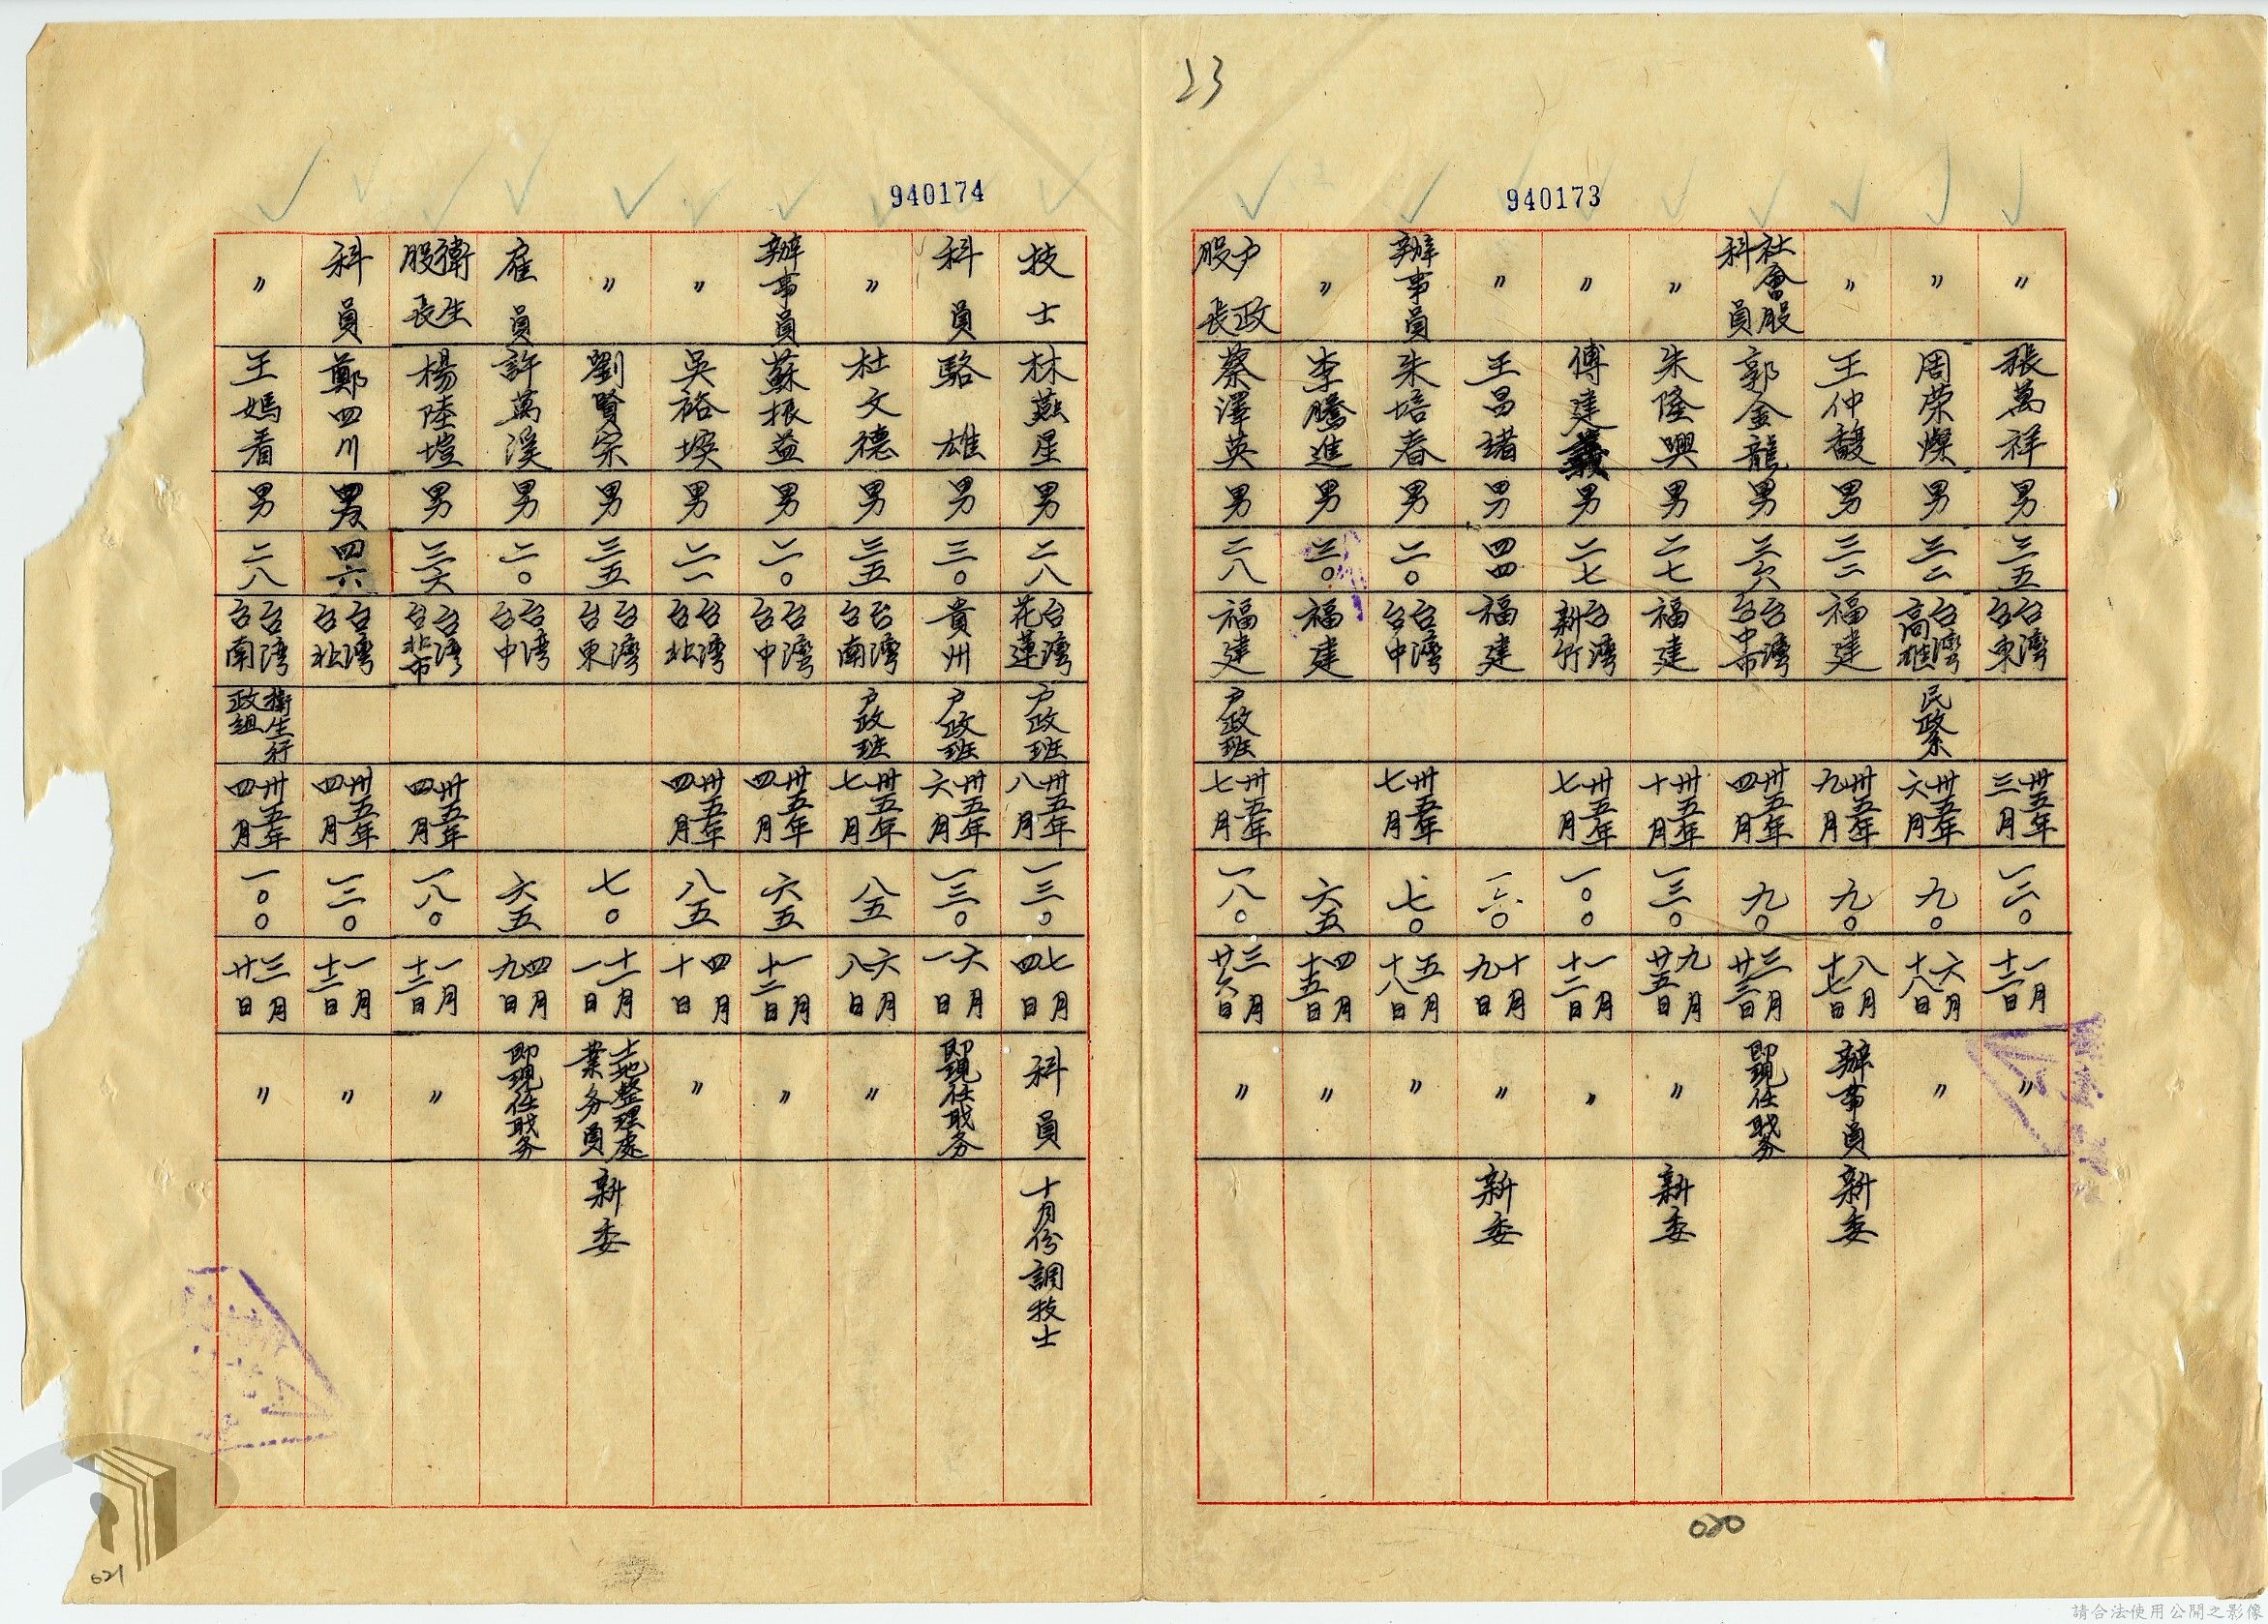 23
940173
〃 張萬祥 男 三五 台灣台東 卅五年三月 一二〇 一月十二日 〃
〃 周荣燦 男 三二 台灣高雄 民政系 卅五年六月 九〇 六月十八日 〃
〃 王仲馥 男 三二 福建 卅五年九月 九〇 八月十七日 辦事員 新委
社會股科員 郭金龍 男 三六 台灣台中市 卅五年四月 九〇 三月廿三日 即現任职务
〃 朱隆興 男 二七 福建 卅五年十月 一三〇 九月廿五日 〃 新委
〃 傅建義 男 二七 台灣新竹 卅五年七月 一〇〇 一月十二日 〃
〃 王昌諸 男 四四 福建 一六〇 十月九日 〃 新委
辦事員 朱培春 男 二〇 台灣台中 卅五年七月 七〇 五月十八日 〃
〃 李騰進 男 三〇 福建 六五 四月十五日 〃
户政股長 蔡澤英 男 二八 福建 户政班 卅五年七月 一八〇 三月廿六日 〃
020
940174
技士 林燕星 男 二八 台灣花蓮 户政班 卅五年八月 一三〇 七月四日 科員 十月份調技士
科員 駱雄 男 三〇 貴州 户政班 卅五年六月 一三〇 六月一日 即現任职务
〃 杜文德 男 三五 台灣台南 户政班 卅五年七月 八五 六月八日 〃
辦事員 蘇振益 男 二〇 台灣台中 卅五年四月 六五 一月十二日 〃
〃 吳裕堺 男 二一 台灣台北 卅五年四月 八五 四月十日 〃
〃 劉賢宗 男 三五 台灣台東 七〇 十一月一日 土地整理處業务員 新委
雇員 許萬溪 男 二〇 台灣台中 六五 四月九日 即現任职务
衛生股長 楊陸塏 男 三六 台灣台北市 卅五年四月 一八〇 一月十二日 〃
科員 鄭四川 男 四六 台灣台北 卅五年四月 一二〇 一月十二日 〃
〃 王媽看 男 二八 台灣台南 衛生行政組 卅五年四月 一〇〇 三月廿日 〃
021
請合法使用公開之影像